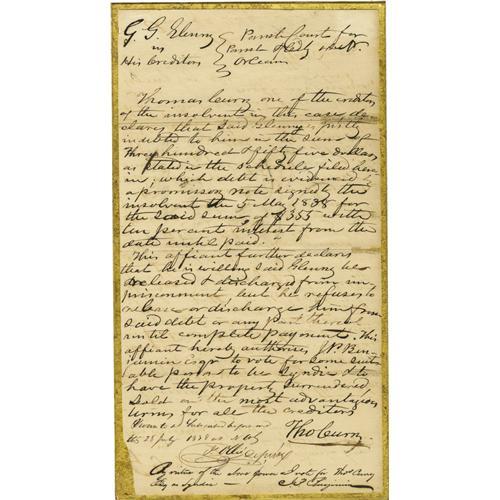 G. G. Glenny } Parish Court for
vs } Parish & City of N.
His Creditors } Orleans
Thomas Curry one of the creditors
of the insolvent in this case de
clares that said Glenny is justly
indebted to him in the sum of
Three hundred & fifty five dollars
as stated in the schedule filed here
in, which debt is evidenced by
a promissory note signed by the
insolvent the 5 May 1838 for
the said sum of $355 with
ten percent interest from the
date until paid.
This affiant further declares
that he is willing said Glenny be
released & discharged from im
prisonment but he refuses to
release or discharge him from
said debt or any part thereof
until complete payment. This
affiant hereby authorises J. P. Ben-
jamin Esqr to vote for some suit
able person to be Syndic & to
have the property surrendered
sold on the most advantageous
terms for all the creditors
Sworn to & subscribed before me
this 28 July 1838
Tho Curry
By virtue of the above power I vote for Thos Curry
as Syndic J P Benjamin